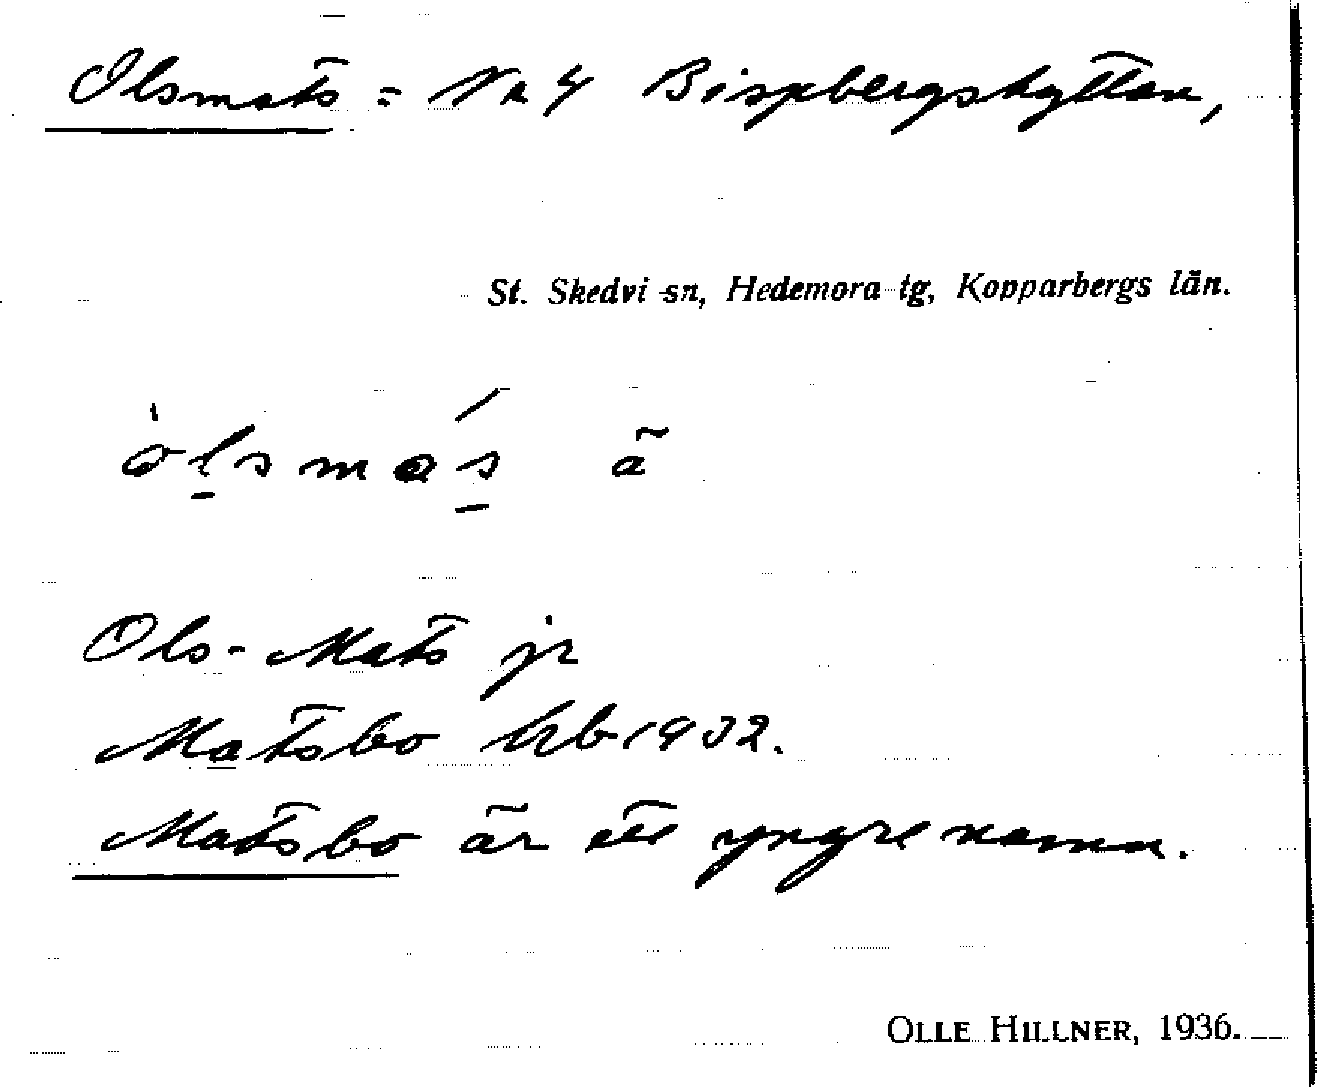 Olsmats = Nr 4 Bispbergshyttan,
St. Skedvi sn, Hedemora tg, Kopparbergs län.
òlsmás ä
Ols-Mats jr
Matsbo krb 1932.
Matsbo är ett yngre namn.
OLLE HILLNER, 1936.